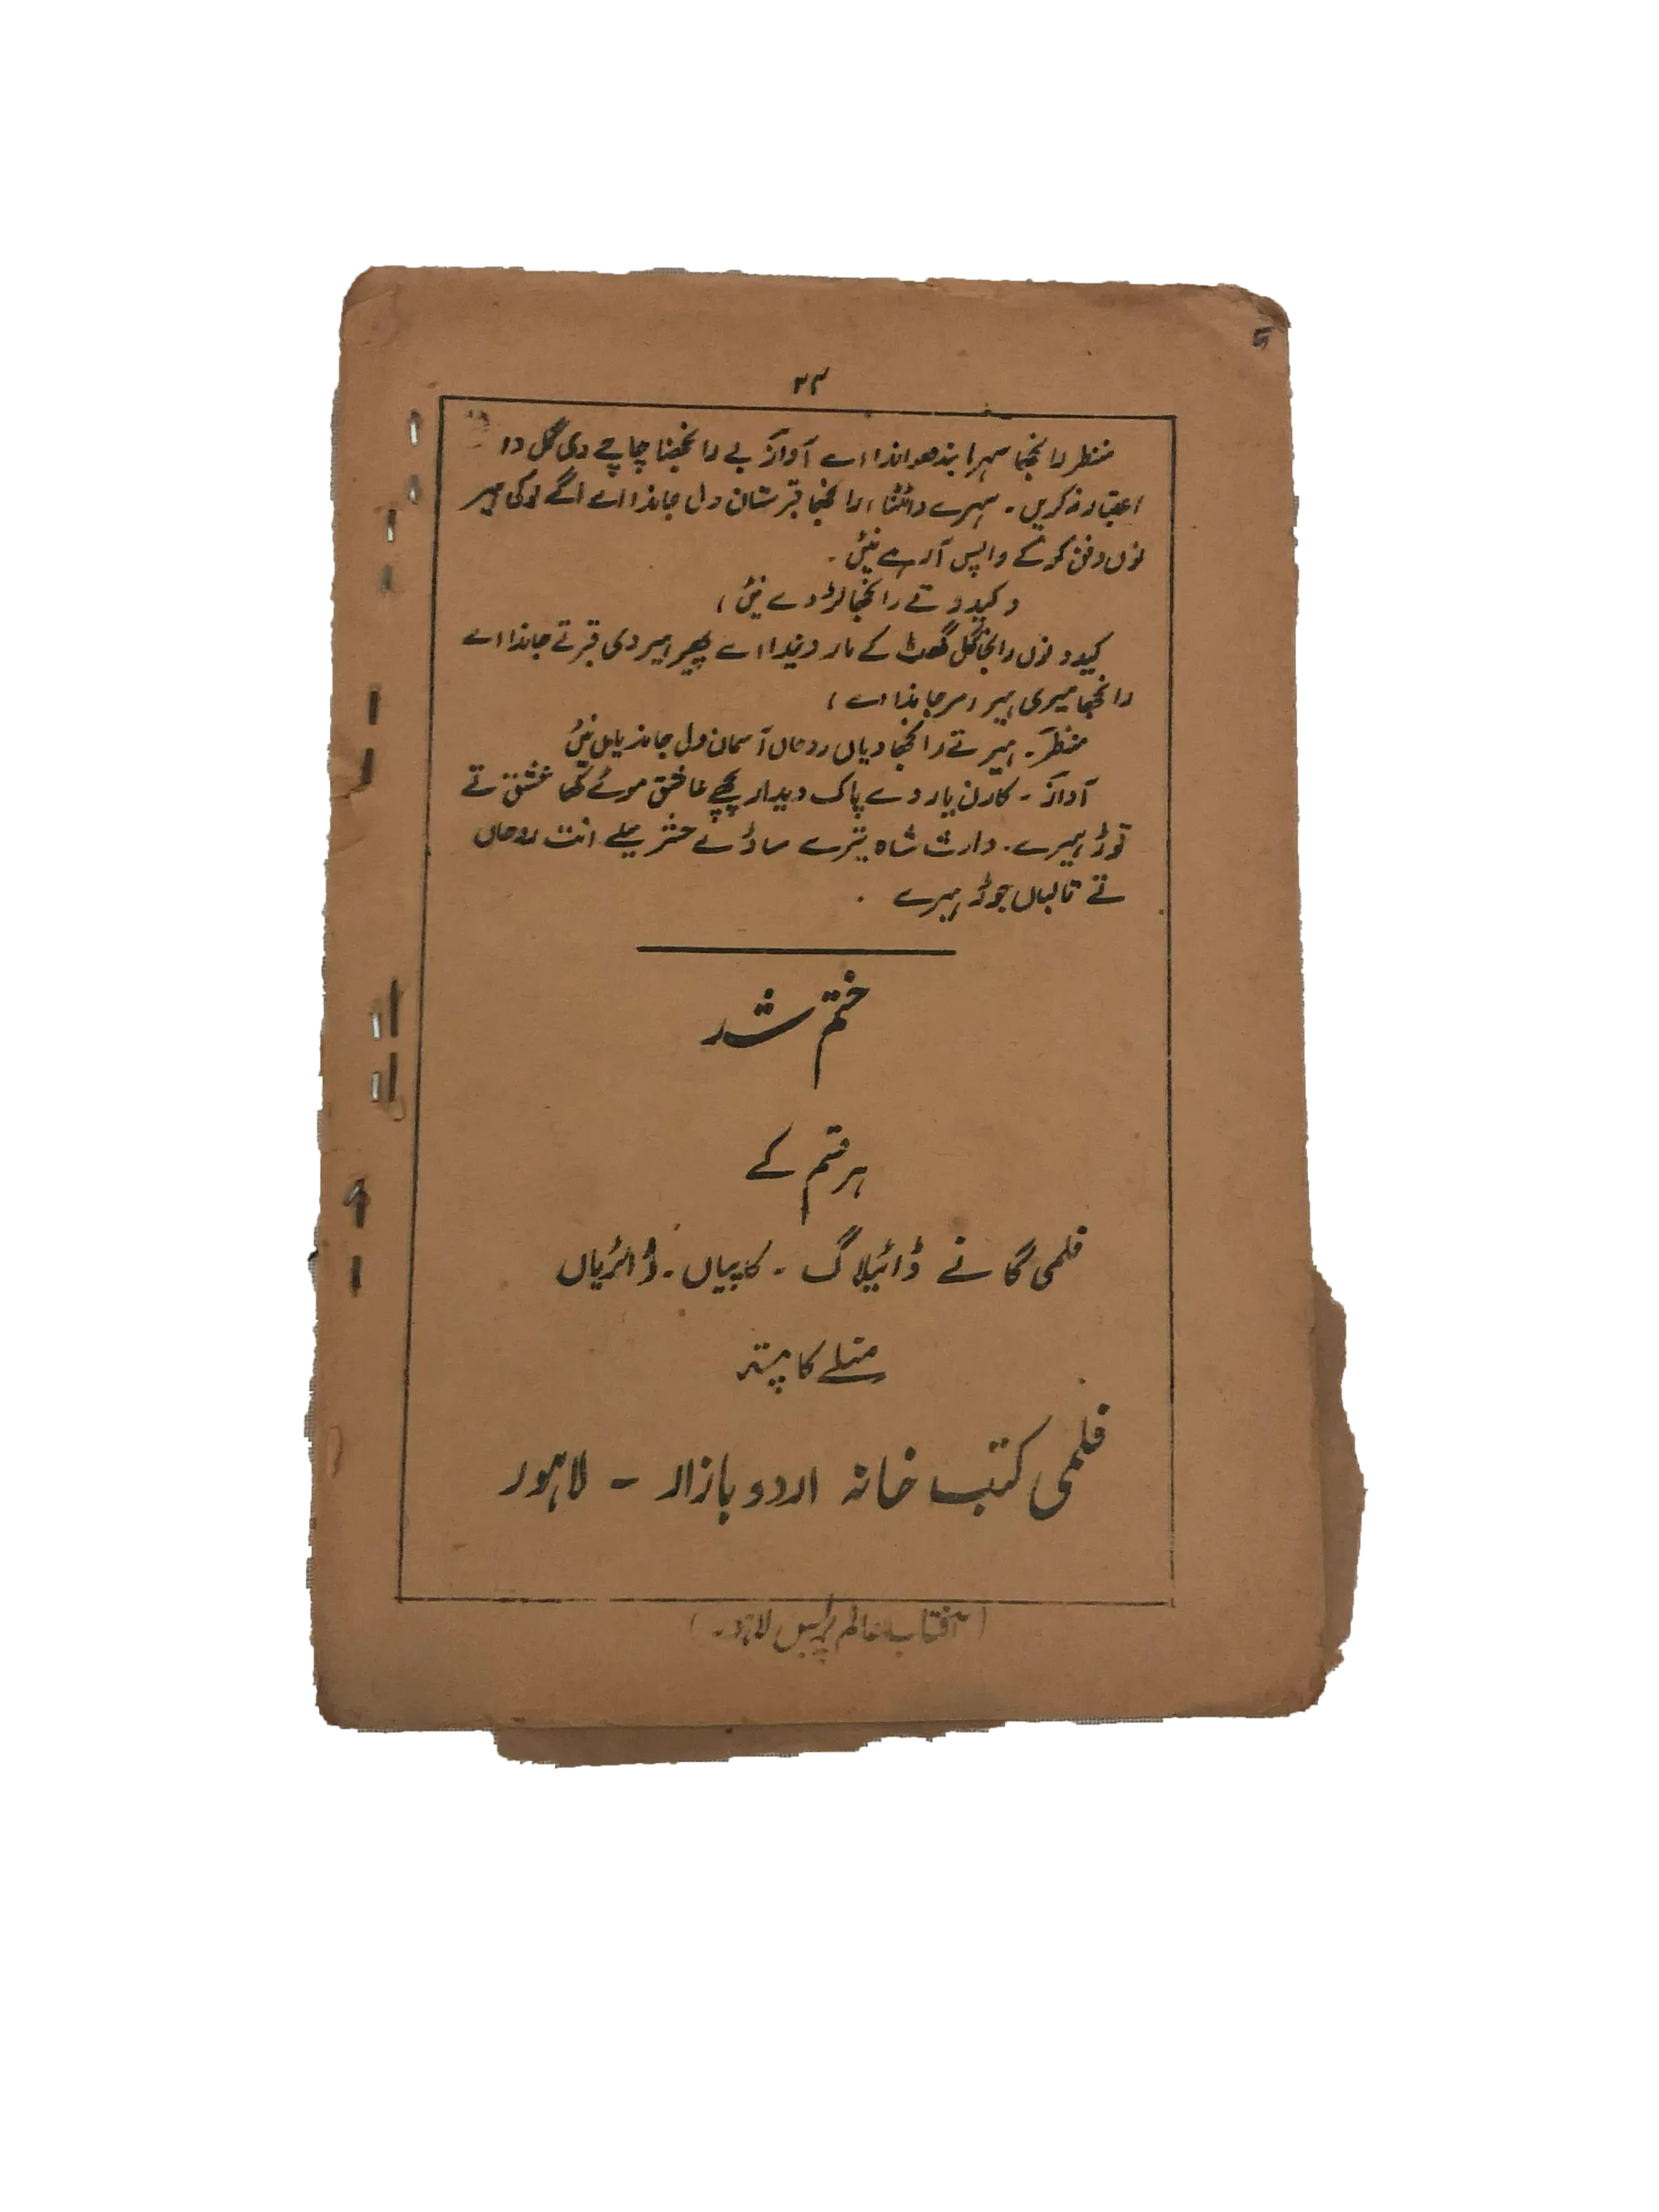 ۲۴
منظر رانجھا سہرا بندھواندا اے آواز بے رانجھنا چاچے دی گل دا
اعتبار نہ کریں ۔ سہرے دا ٹٹنا ، رانجھا قبرستان ول جاندا اے اگے لوکی ہیر
نوں دفن کر کے واپس آرہے نیئں ۔
( کیدو تے رانجھا لڑدے نیئں )
کیدو نوں رانجھا گل گھٹ کے مار دیندا اے پھیر ہیر دی قبر تے جاندا اے
رانجھا میری ہیر ، مر جاندا اے )
منظر ۔ ہیر تے رانجھا دیاں روحاں آسمان ول جاندیاں نیئں
آواز ۔ کارن یار دے پاک دیدار پچھے عاشق موئے کھا عشق تے
توڑ ہیرے ۔ وارث شاہ تیرے ساڈے حشر میلے انت روحاں
تے تالیاں جوڑ ہیرے .
ختم شد
ہر قسم کے
فلمی گانے ڈائیلاگ ۔ کاپیاں ۔ ڈائریاں
ملنے کا پتہ
فلمی کتب خانہ اردو بازار ۔ لاہور
( آفتاب عالم پریس لاہور ۔ )